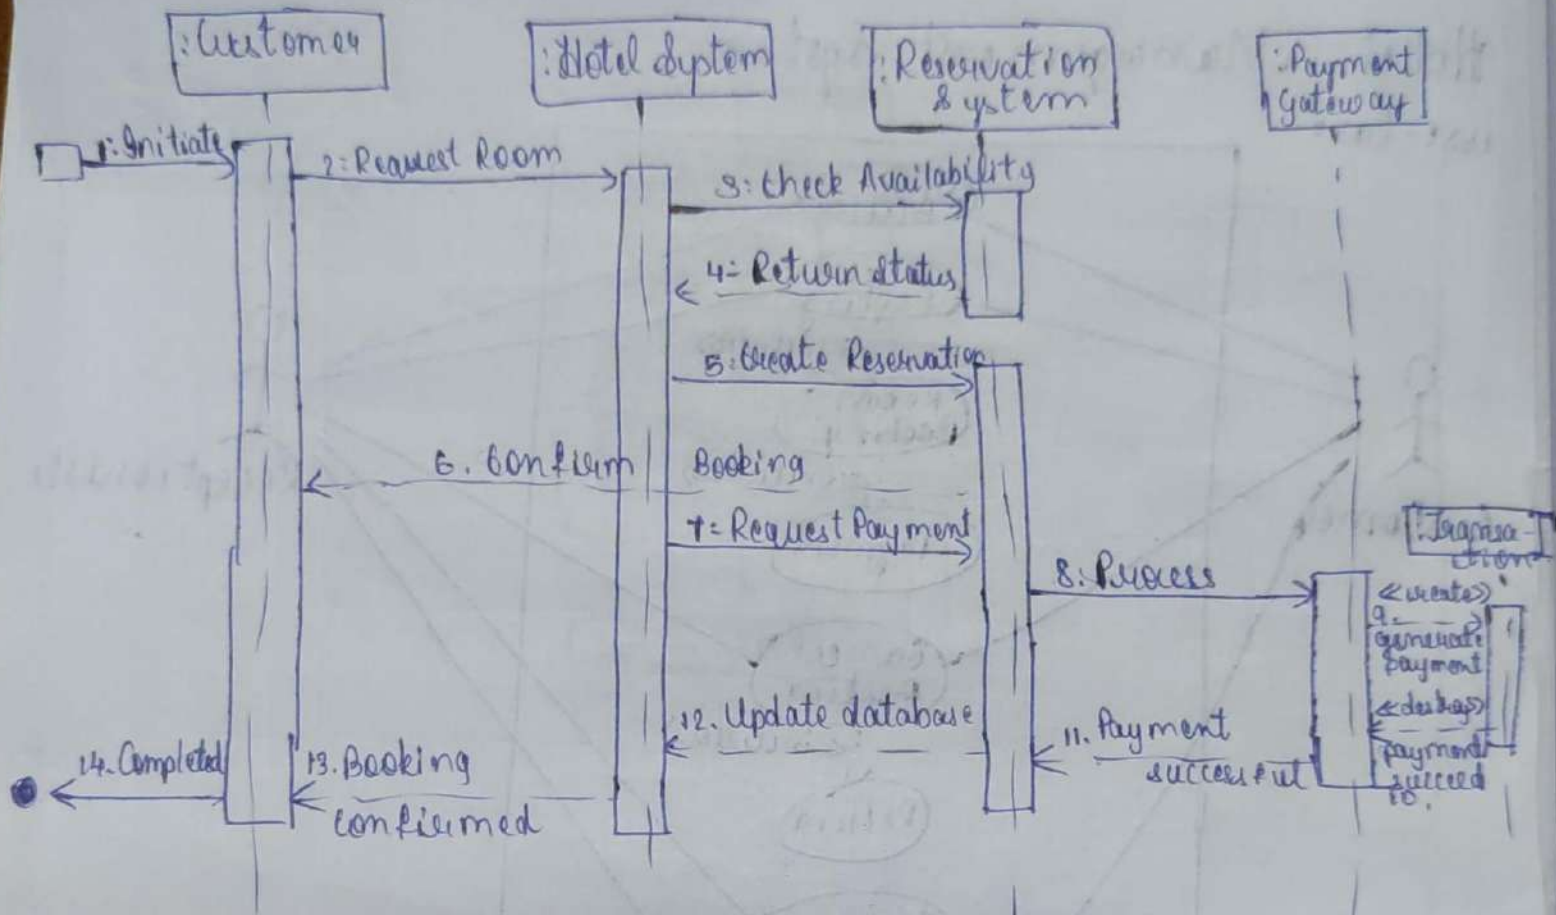 :Customer
:Hotel System
:Reservation
System
:Payment
gateway
1:Initiate
2:Request Room
3:Check Availability
4:Return Status
5:Create Reservation
6.Confirm Booking
7:Request Payment
8:Process
:Transa-
ction
<<create>>
9.
generate
payment
<<destroy>>
payment
succeed
10.
11.Payment
successful
12.Update database
13.Booking
confirmed
14.Completed